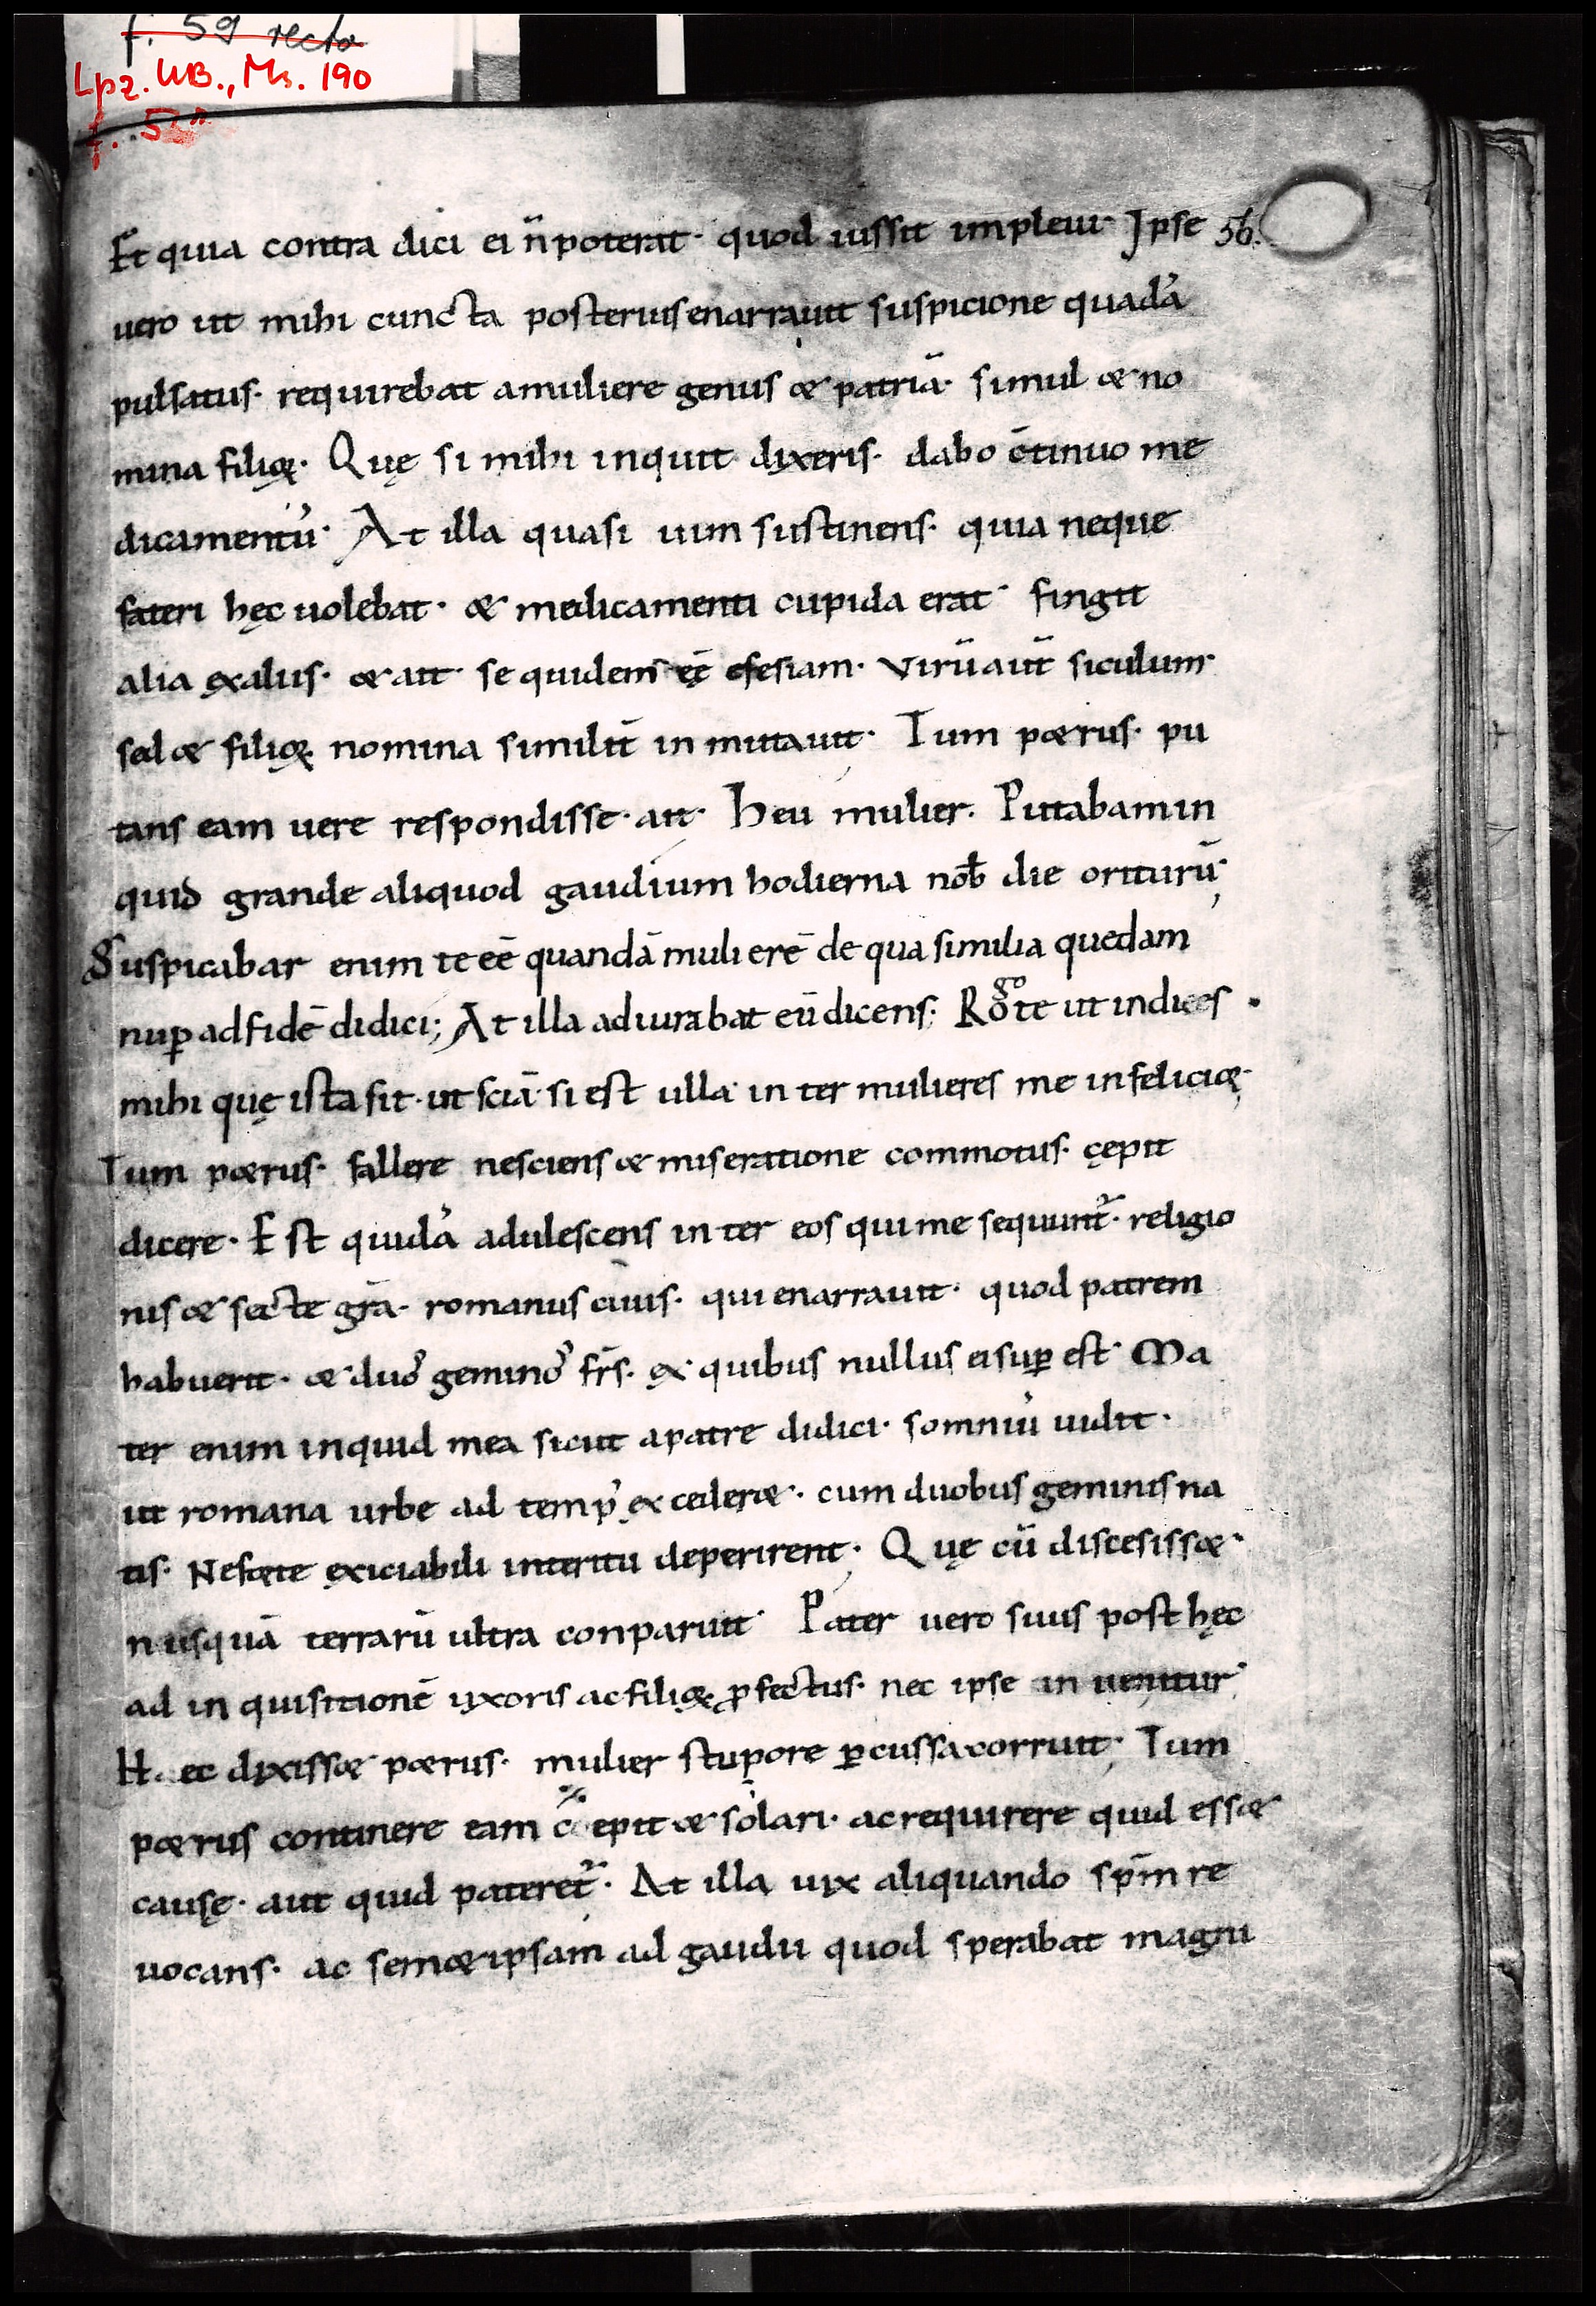 f. 59 recto
Lpz. UB., Ms. 190
Et quia contra dici ei n̄ poterat· quod iussit impleui· Ipse 56.
uero ut mihi cuncta posterius enarrauit suspicione quadā
pulsatus· requirebat amuliere genus & patriā· simul & no
mina filioꝝ· Quę si mihi inquit dixeris· dabo c̄tinuo me
dicamentū· At illa quasi uim sustinens· quia neque
fateri hęc uolebat· & medicamenti cupida erat· fingit
alia ex aliis· & ait· se quidem eē efesiam· virū aūt siculum·
sed & filioꝝ nomina similit̄ inmutauit· Tum p&rus· pu
tans eam uere respondisse· ait· Heu mulier· Puttabam in
quid grande aliquod gaudium hodierna nob̄ die oriturū·
Suspicabar enim te eē quandā mulierē de qua similia quedam
nuꝑ ad fidē didici; At illa adiurabat eū dicens; Rogo te ut indices
mihi quę ista sit· ut sciā· si est ulla inter mulieres me infelicioꝝ·
Tum p&rus· fallere nesciens & miseratione commotus· cępit
dicere· Est quidā adulescens inter eos qui me sequunt̄· religio
nis & secte grā· romanus ciuis· qui enarrauit· quod patrem
habuerit· & duoˢ geminoˢ frs̄· ex quibus nullus ei suꝑ est· Ma
ter enim inquid mea sicut apatre didici· somniū uidit·
ut romana urbe ad temp᾽ exceder&· cum duobus geminis na
tis· Ne foete exiciabili interitu deperirent· Quę cū discesiss&·
nusquā terrarū ultra conparuit· Pater uero suus post hęc
ad inquisitionē uxoris ac filioꝝ ꝓfectus· nec ipse inuenitur·
Haec dixiss& p&rus· mulier stupore ꝑcussa corruit· Tum
p&rus continere eam coepit & solari· ac requirere quid ess&
causę· aut quid pateret̄· At illa uix aliquando sp̄m re
uocans· ac sem&ipsam ad gaudii quod sperabat magni